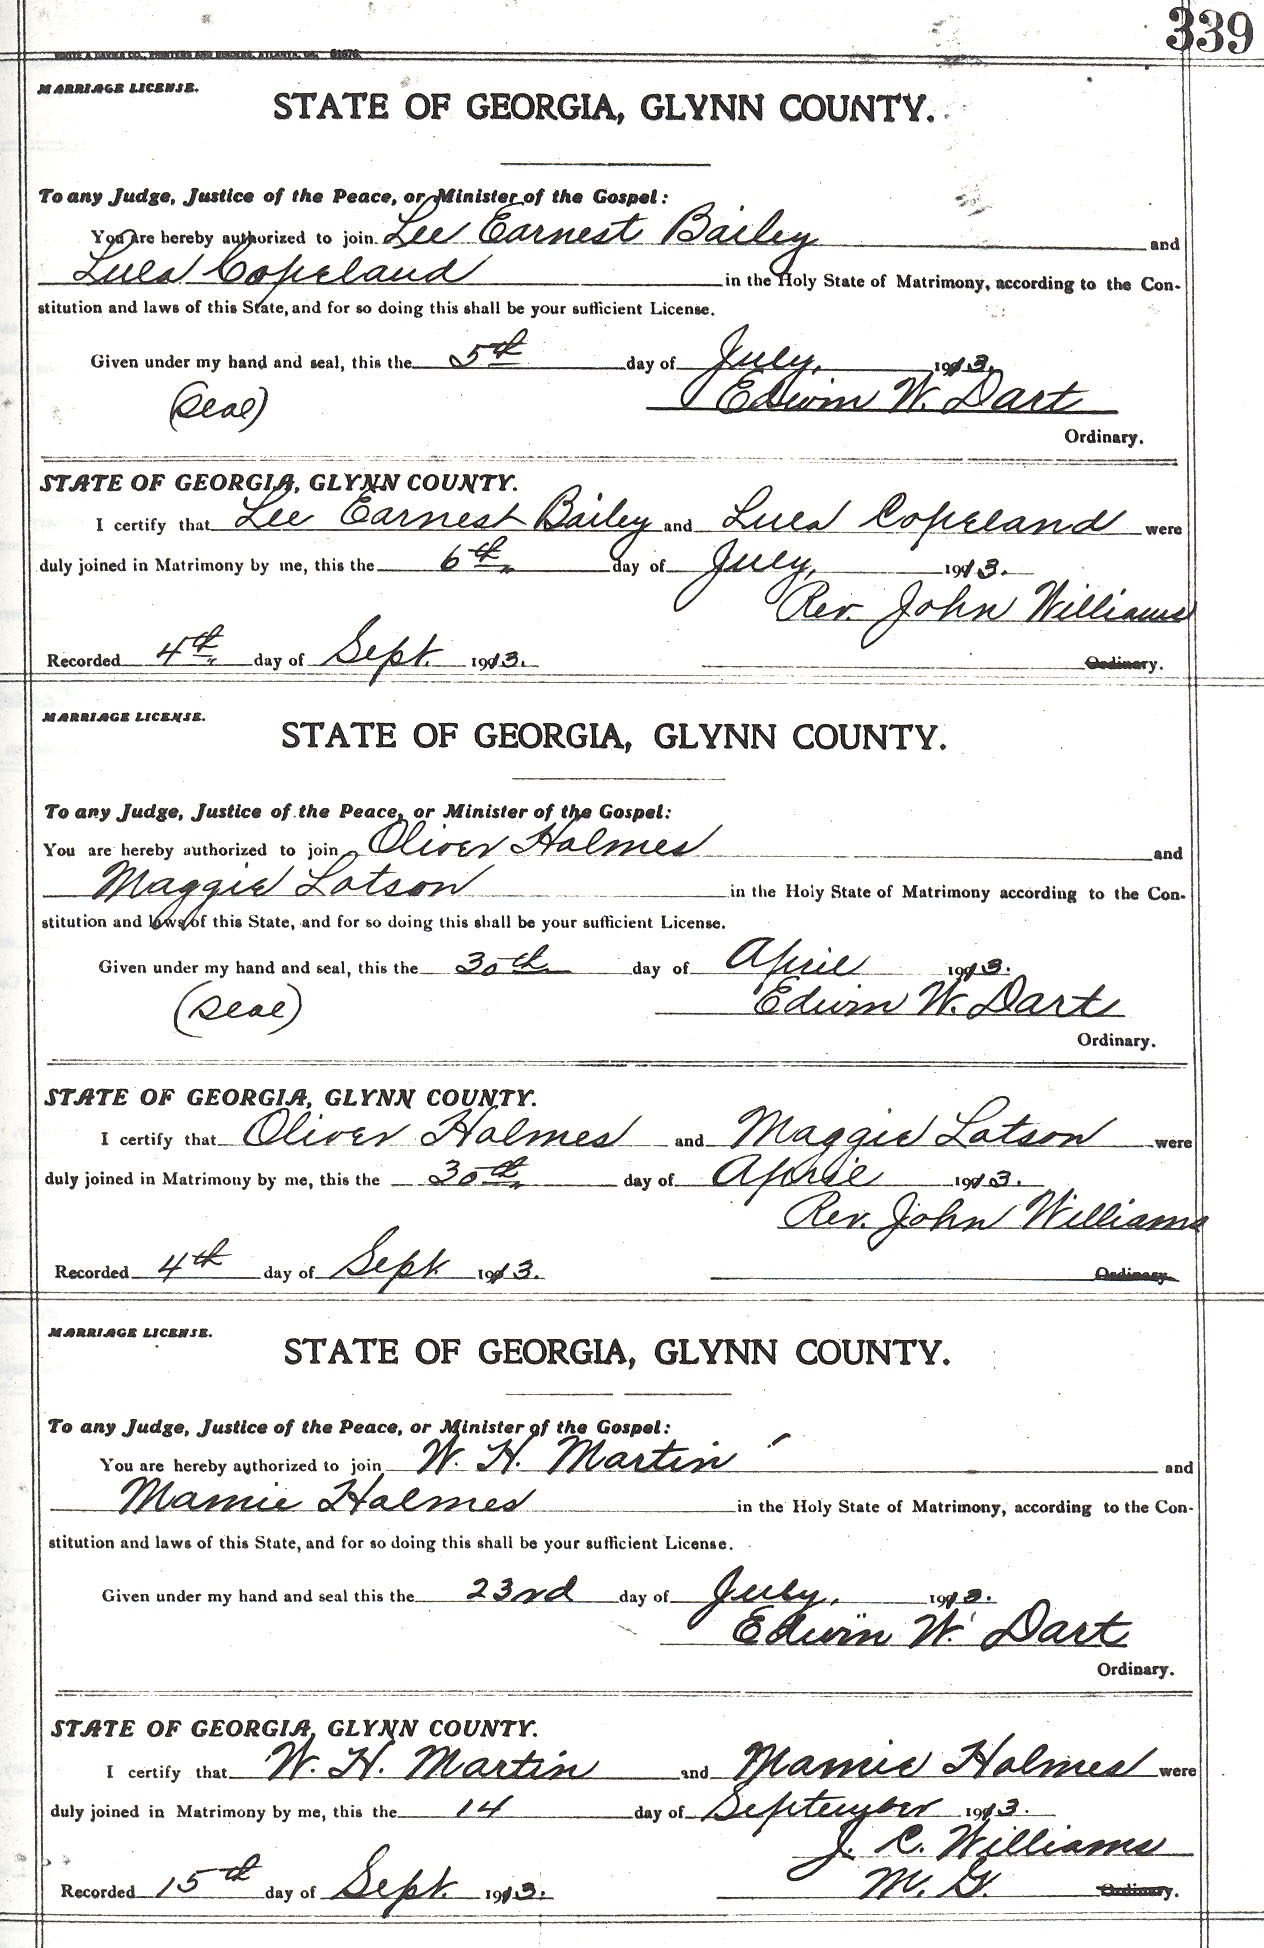 339
MARRIAGE LICENSE.
STATE OF GEORGIA, GLYNN COUNTY.
To any Judge, Justice of the Peace, or Minister of the Gospel:
You are hereby authorized to join Lee Earnest Bailey and
Lula Copeland in the Holy State of Matrimony, according to the Con-
stitution and laws of this State, and for so doing this shall be your sufficient License.
Given under my hand and seal, this the 5th day of July, 1913.
(seal) Edwin W. Dart
Ordinary.
STATE OF GEORGIA, GLYNN COUNTY.
I certify that Lee Earnest Bailey and Lula Copeland were
duly joined in Matrimony by me, this the 6th day of July, 1913.
Rev. John Williams
Recorded 4th day of Sept. 1913. Ordinary.
MARRIAGE LICENSE.
STATE OF GEORGIA, GLYNN COUNTY.
To any Judge, Justice of the Peace, or Minister of the Gospel:
You are hereby authorized to join Oliver Holmes and
Maggie Lotson in the Holy State of Matrimony according to the Con-
stitution and laws of this State, and for so doing this shall be your sufficient License.
Given under my hand and seal, this the 30th day of April 1913.
(seal) Edwin W. Dart
Ordinary.
STATE OF GEORGIA, GLYNN COUNTY.
I certify that Oliver Holmes and Maggie Lotson were
duly joined in Matrimony by me, this the 30th day of April 1913.
Rev. John Williams
Recorded 4th day of Sept. 1913. Ordinary.
MARRIAGE LICENSE.
STATE OF GEORGIA, GLYNN COUNTY.
To any Judge, Justice of the Peace, or Minister of the Gospel:
You are hereby authorized to join W. H. Martin and
Mamie Holmes in the Holy State of Matrimony, according to the Con-
stitution and laws of this State, and for so doing this shall be your sufficient License.
Given under my hand and seal this the 23rd day of July, 1913.
Edwin W. Dart
Ordinary.
STATE OF GEORGIA, GLYNN COUNTY.
I certify that W. H. Martin and Mamie Holmes were
duly joined in Matrimony by me, this the 14 day of September 1913.
J. C. Williams
Recorded 15th day of Sept. 1913. M. G. Ordinary.